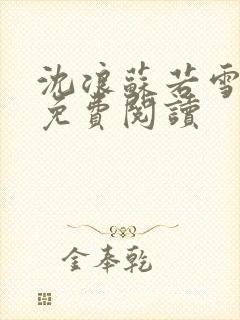 沈浪蘇若雪
免費閱讀
金奉乾